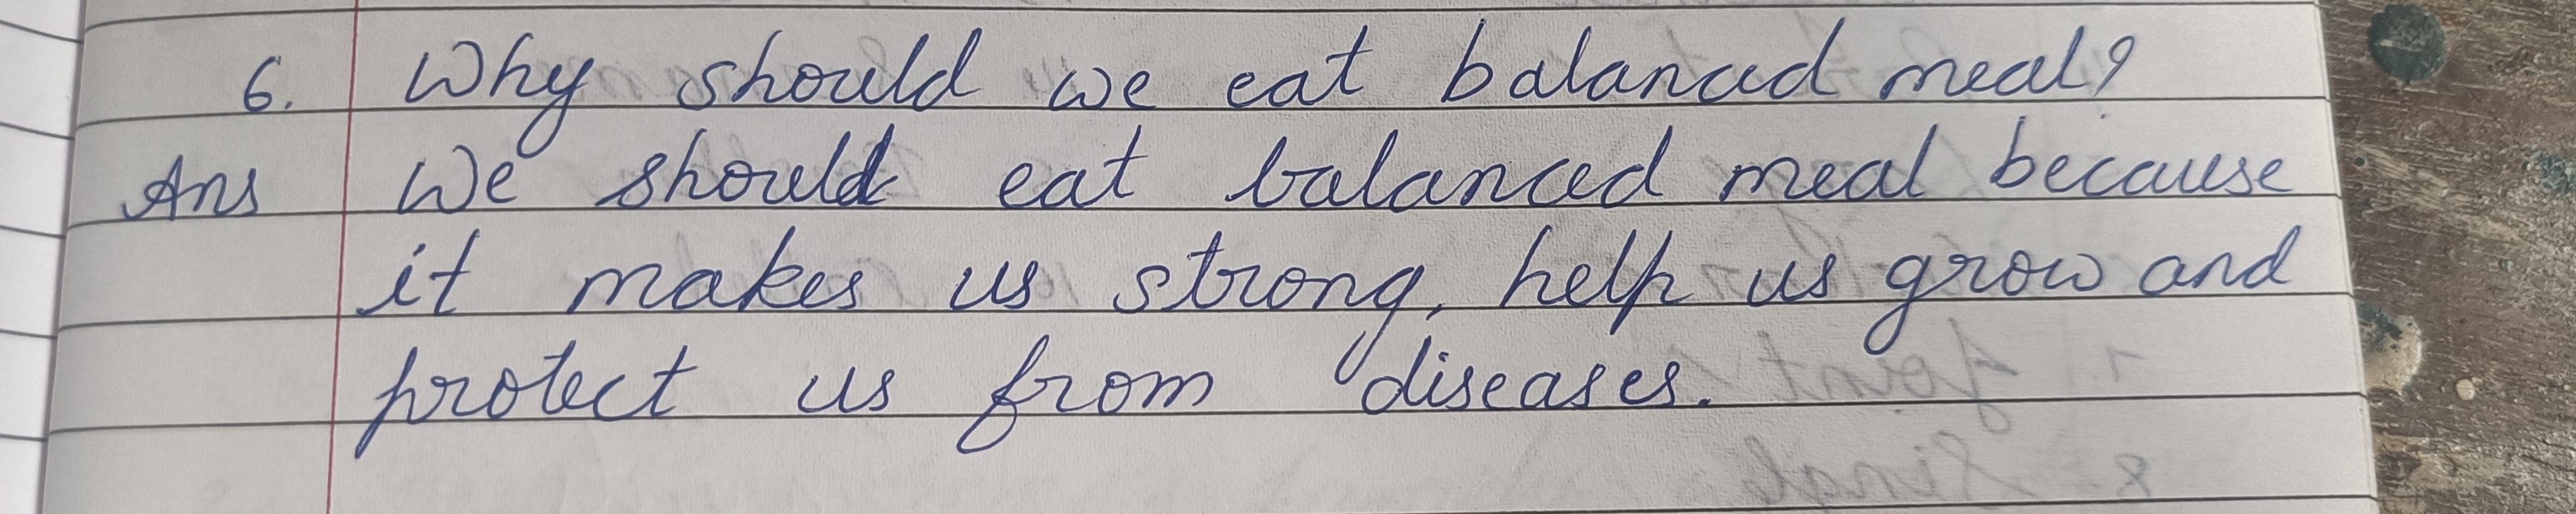 6. Why should we eat balanced meal?
Ans We should eat balanced meal because
it makes us strong, help us grow and
protect us from diseases.